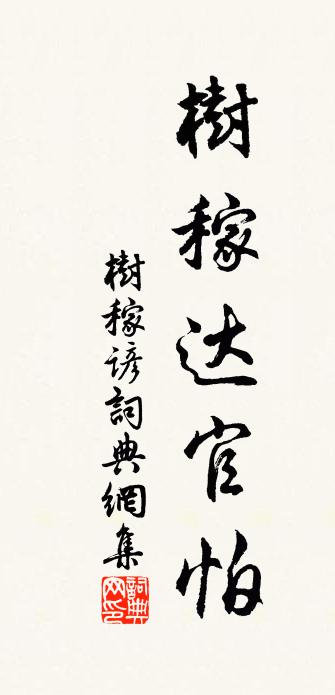 樹稼达官怕
樹稼諺詞典網集
詞典
网印